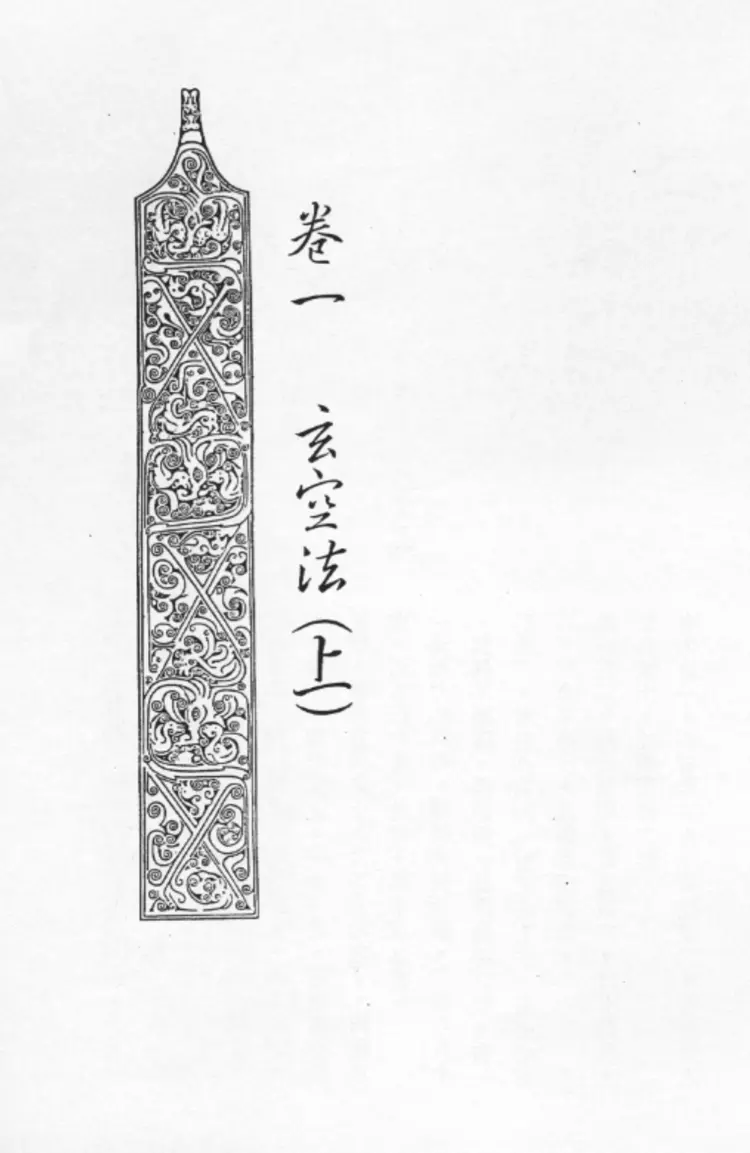 卷一　玄空法（上）